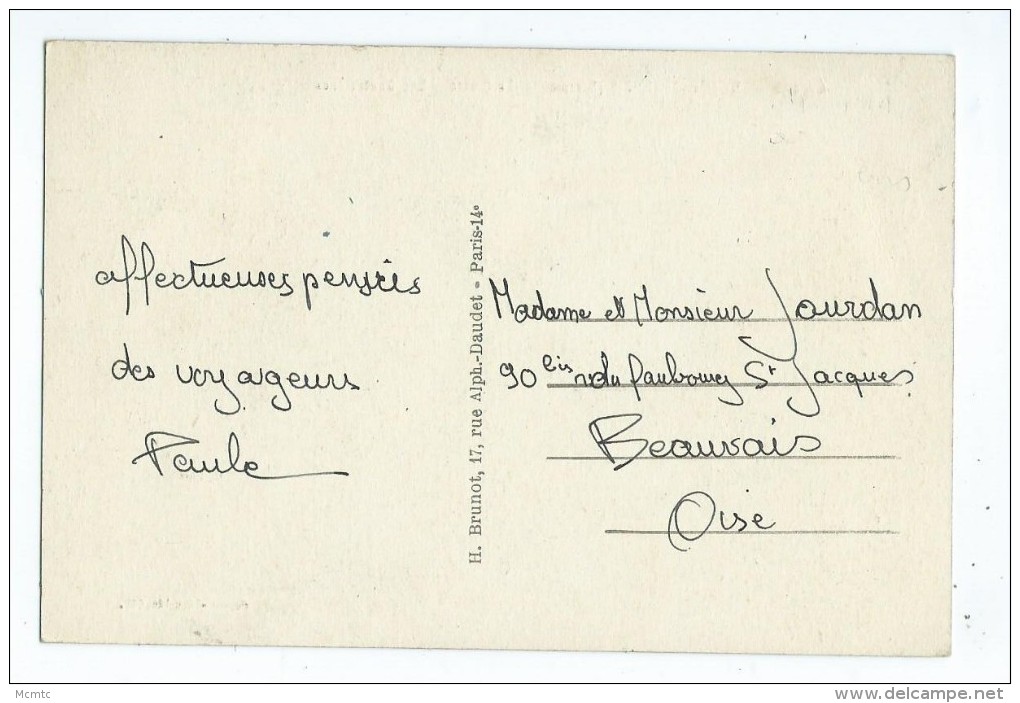 affectueuses pensées
des voyageurs
Paule
H. Brunot, 17, rue Alph.-Daudet - Paris-14e
Madame et Monsieur Jourdan
90 bis r du faubourg St Jacques
Beauvais
Oise
Mcmtc
www.delcampe.net